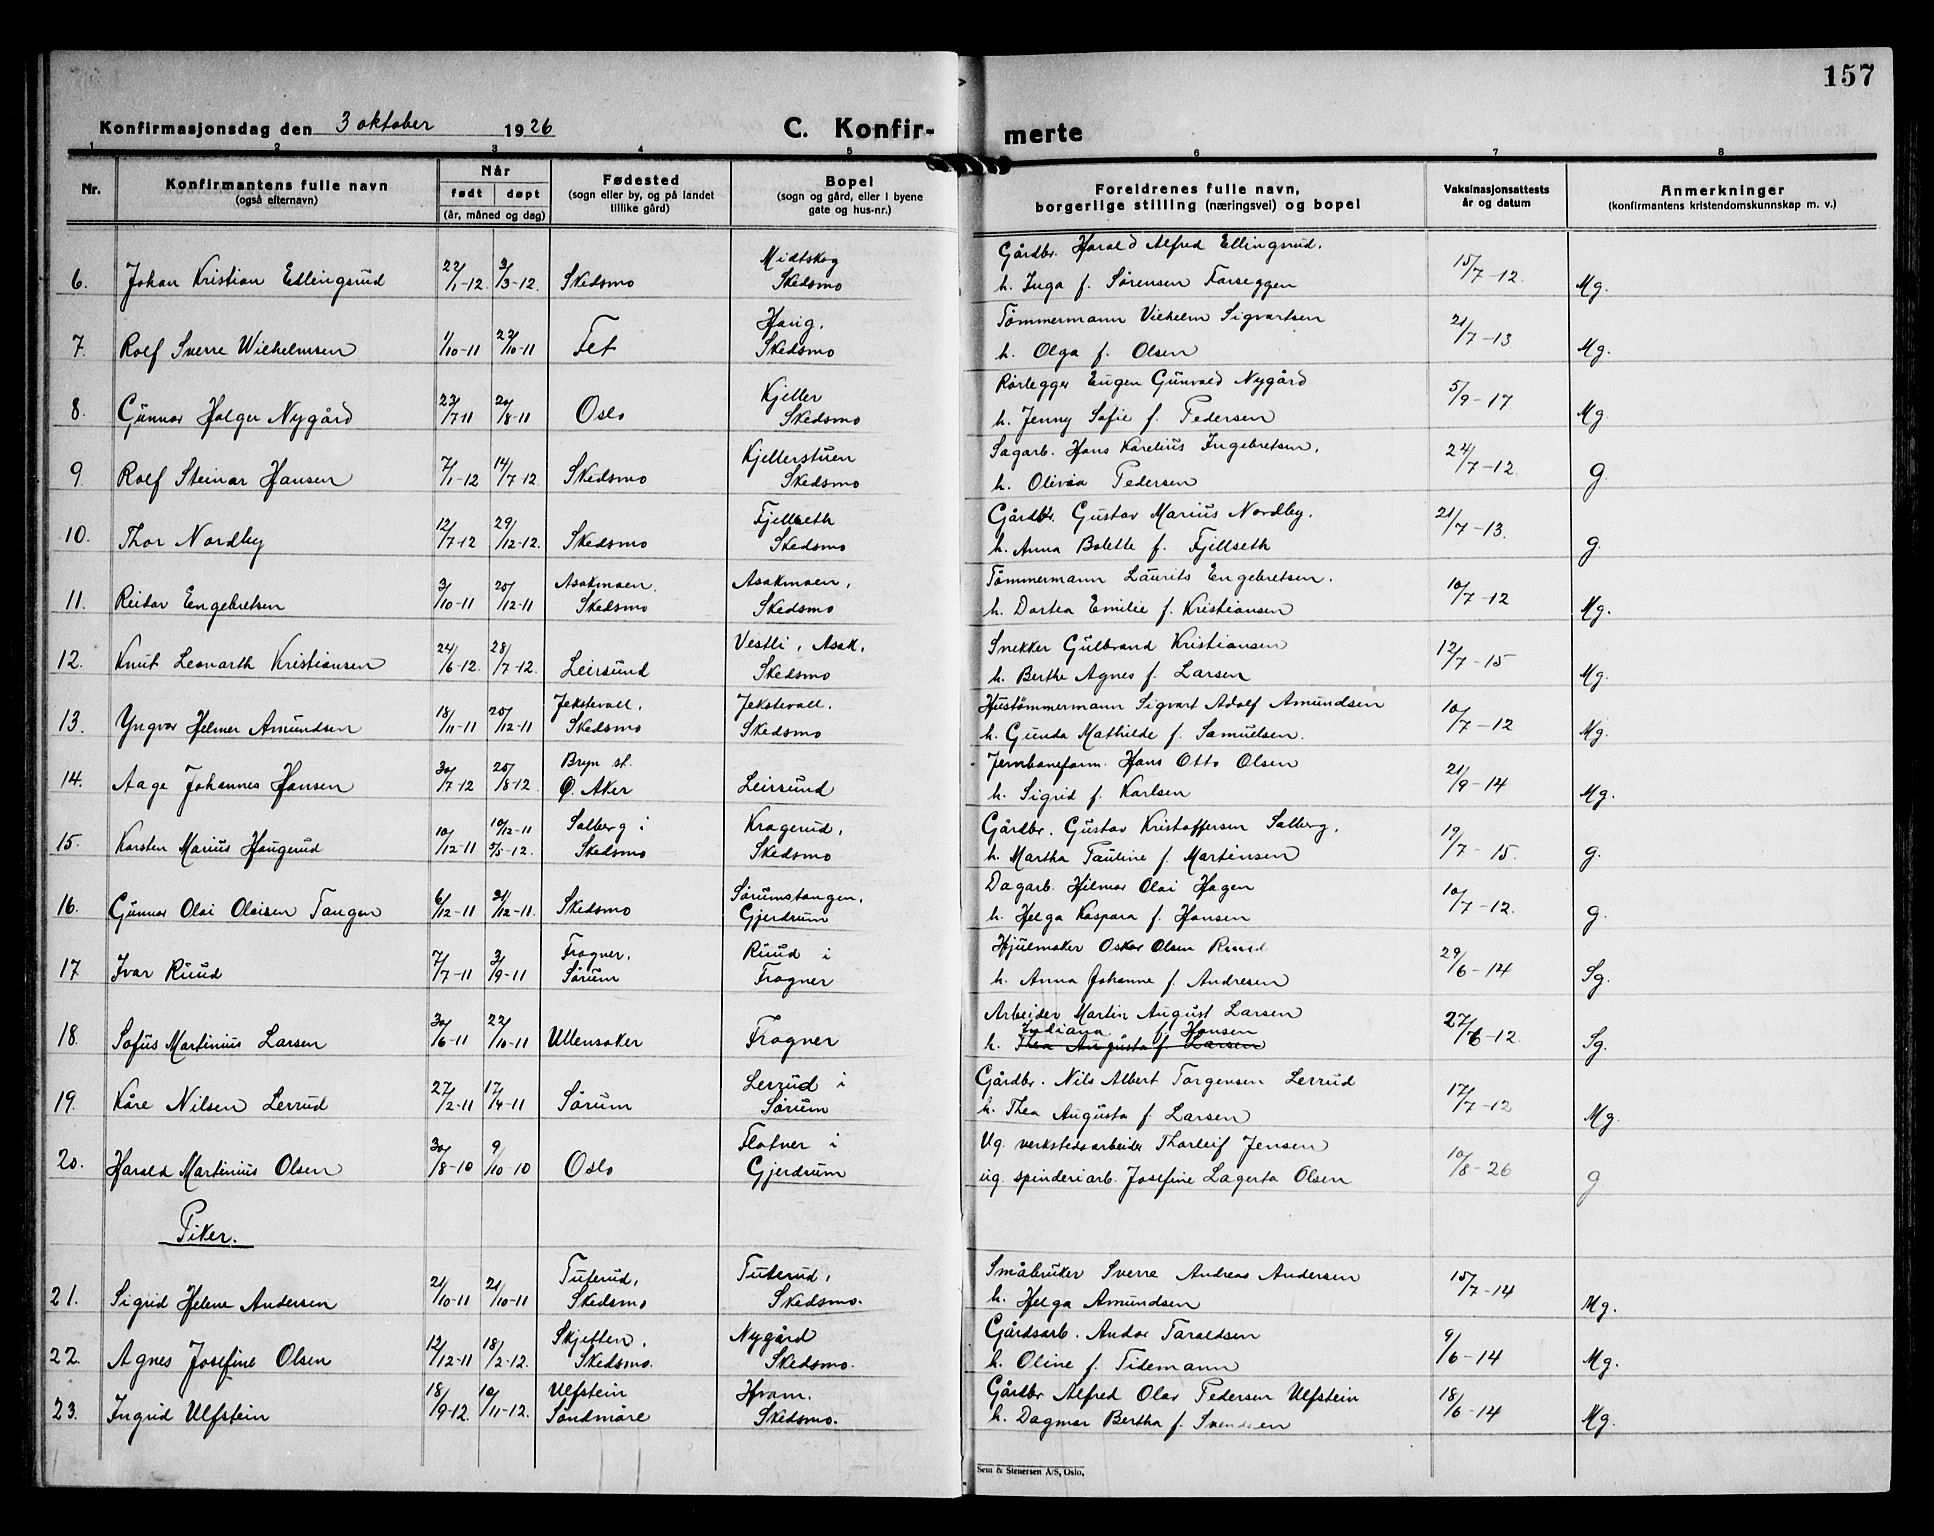 157
Konfirmasjonsdag den 3 oktober 1926 C. Konfir- merte
1 2 3 4 5 6 7 8
Nr. Konfirmantens fulle navn (også efternavn) Når født døpt (år, måned og dag) Fødested (sogn eller by, og på landet tillike gård) Bopel (sogn og gård, eller i byene gate og hus-nr.) Foreldrenes fulle navn, borgerlige stilling (næringsvei) og bopel Vaksinasjonsattests år og datum Anmerkninger (konfirmantens kristendomskunnskap m. v.)
Midtskog Gårdbr. Harald Alfred Ellingsrud.
6. Johan Kristian Ellingsrud 22/1-12 3/3-12. Skedsmo Skedsmo h. Inga f. Sørensen Farseggen 15/7-12 Mg.
Haug, Tømmermann Vilhelm Sigvartsen
7. Rolf Sverre Wilhelmsen 1/10-11 22/10-11 Fet Skedsmo h. Olga f. Olsen 21/7-13 Mg.
Kjeller Rørlegger Eugen Gunvald Nygård
8. Gunnar Holger Nygård 23/7-11 20/8-11 Oslo Skedsmo h. Jenny Sofie f. Pedersen 5/9-17 Mg.
Kjellerstuen Sagarb. Hans Karelius Ingebretsen,
9. Rolf Steinar Hansen 7/1-12 14/7-12 Skedsmo Skedsmo h. Olivia Pedersen 24/7-12 g.
Fjellseth Gårdbr. Gustav Marius Nordby.
10. Thor Nordby 12/7-12 29/12-12. Skedsmo Skedsmo h. Anna Bolette f. Fjellseth 21/7-13. g.
Asakmoen. Asakmoen, Tømmermann Laurits Engebretsen.
11. Reidar Engebretsen 3/10-11 25/12-11 Skedsmo Skedsmo h. Dortea Emilie f. Kristiansen 10/7-12 Mg.
Vestli, Asak, Snekker Gulbrand Kristiansen
12. Knut Leonarth Kristiansen 24/6-12. 28/7-12. Leirsund Skedsmo h. Berthe Agnes f. Larsen 12/7-15 Mg.
Jekstevoll, Jekstevoll. Hustømmermann Sigvart Adolf Amundsen
13. Yngvar Helmer Amundsen 18/11-11 25/12-11 Skedsmo Skedsmo h. Gunda Mathilde f. Samuelsen. 10/7-12 Mg.
Bryn st. Jernbaneform. Hans Otto Olsen
14. Aage Johannes Hansen 30/7-12 25/8-12 Ø. Aker Leirsund h. Sigrid f. Karlsen 21/9-14 Mg.
Solberg i Kragerud, Gårdbr. Gustav Kristoffersen Solberg,
15. Karsten Marius Haugerud 10/12-11 10/12-11 5/5-12. Skedsmo Skedsmo h. Martha Pauline f. Martinsen 19/7-15. g.
Sørumstangen, Dagarb. Hilmar Olai Hagen
16. Gunnar Olai Olaisen Tangen 6/12-11 31/12-11. Skedsmo Gjerdrum h. Helga Kaspara f. Hansen 10/7-12. g.
Frogner, Ruud i Hjulmaker Oskar Olsen Ruud
17 Ivar Ruud 7/7-11 3/9-11 Sørum Frogner h. Anna Johanne f. Andresen 29/6-14 Sg.
Arbeider Martin August Larsen
Indiana f. Hansen
18. Sofus Martinius Larsen 30/6-11 22/10-11 Ullensaker Frogner h. Thea Augusta f. Larsen 27/6-12. Sg.
Lerrud i Gårdbr. Nils Albert Torgensen Lerrud
19. Kåre Nilsen Lerrud 27/2-11 17/4-11 Sørum Sørum h. Thea Augusta f. Larsen 17/7-12 Mg.
Flatner i Ug. verkstedsarbeider Thorleif Jensen
20. Harald Martinius Olsen 30/8-10 9/10-10 Oslo Gjerdrum ug. spinderiarb. Josefine Lagerta Olsen 10/8-26 g
Piker.
Tuterud, Tuterud, Småbruker Sverre Andreas Andersen
21. Sigrid Helene Andersen 21/10-11 21/10-11 Skedsmo Skedsmo. h. Helga Amundsen 15/7-14 Mg.
Skjetten, Nygård Gårdsarb. Andor Taraldsen
22. Agnes Josefine Olsen 12/12-11 18/2-12. Skedsmo. Skedsmo. h. Oline f. Tidemann 9/6-14 Mg.
Ulfstein Hvam. Gårdbr Alfred Olav Pedersen Ulfstein
23. Ingrid Ulfstein 18/9-12. 10/11-12. Søndmøre Skedsmo. h. Dagmar Bertha f. Svendsen 18/6-14 Mg.
Sem & Stenersen A/S, Oslo.